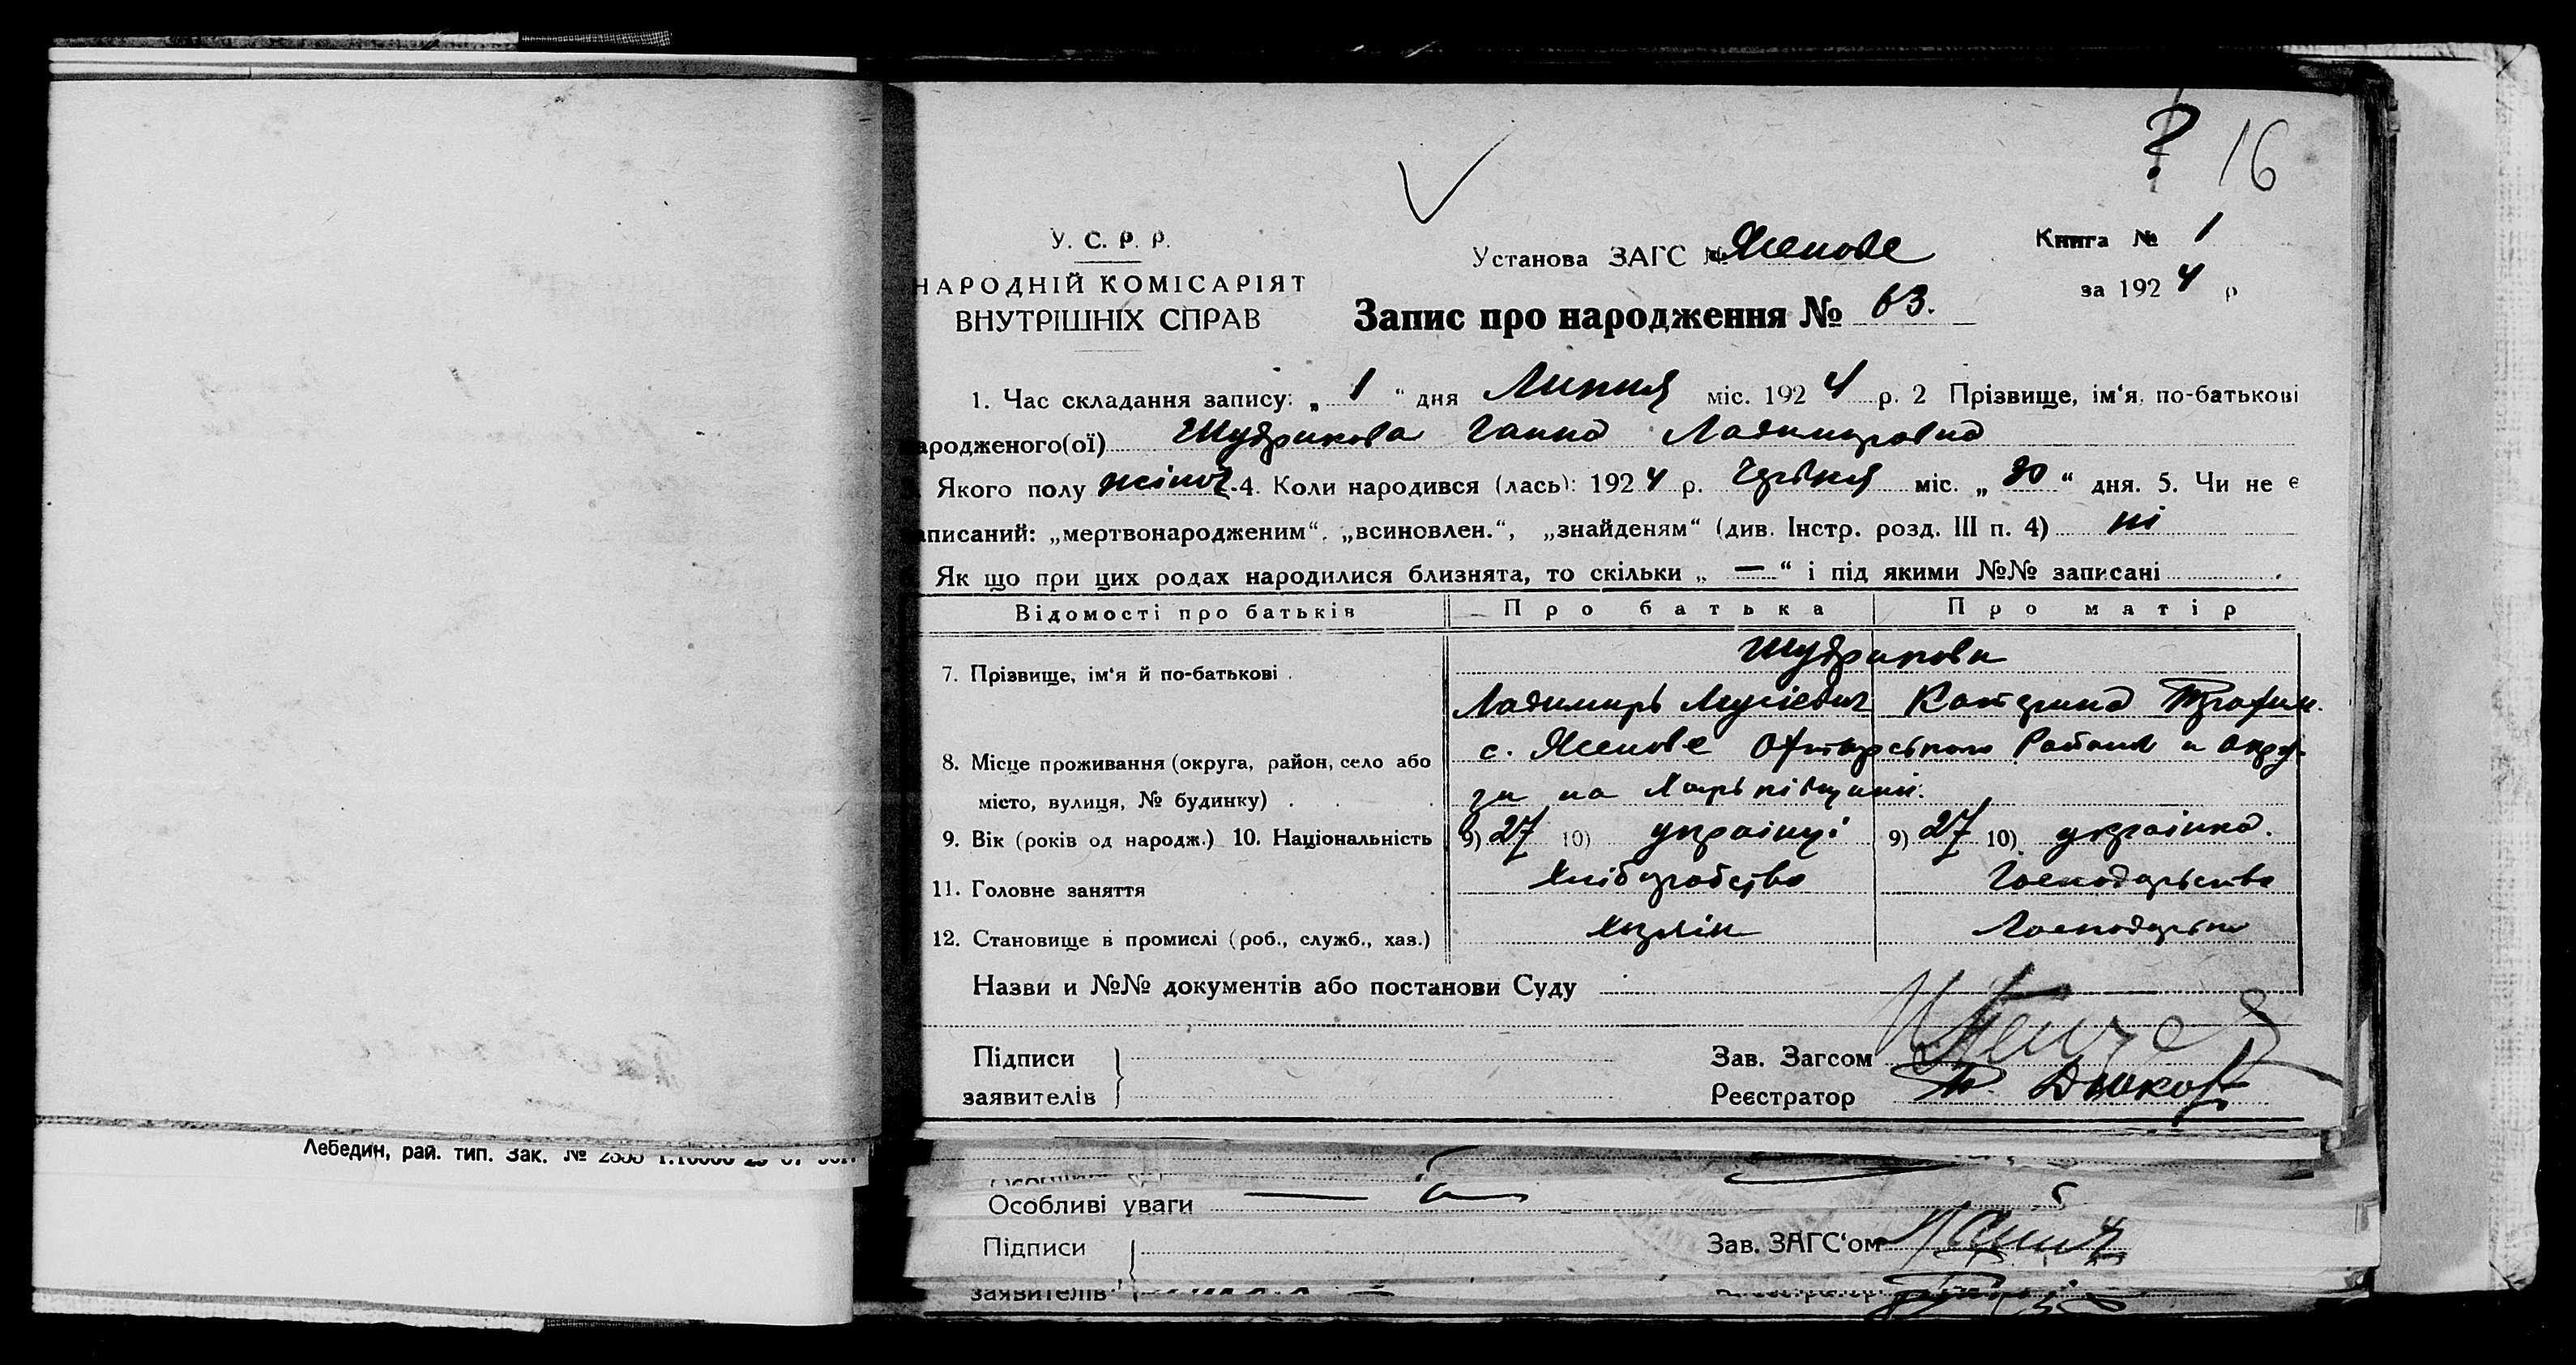 ? 16
У. С. Р. Р.
НАРОДНІЙ КОМІСАРІЯТ
ВНУТРІШНІХ СПРАВ
Установа ЗАГС № Ясенове
Книга № 1
за 1924 р
Запис про народження № 63.
1. Час складання запису: „ 1 “ дня Липня міс. 1924 р. 2 Прізвище, ім‘я, по-батькові
ародженого(ої) Шудрикова Ганна Ладимировна
Якого полу жіноч. 4. Коли народився (лась): 1924 р. Червня міс. „ 30 “ дня. 5. Чи не є
аписаний: „мертвонародженим“, „всиновлен.“, „знайденям“ (див. Інстр. розд. III п. 4) ні
Як що при цих родах народилися близнята, то скільки „ — “ і під якими №№ записані
Відомості про батьків Про батька Про матір
Шудрикови
7. Прізвище, ім‘я й по-батькові .
Ладимирь Мусіевич Катерина Трофим.
8. Місце проживання (округа, район, село або
с. Ясенове Охтирського Району и окру-
місто, вулиця, № будинку) .
ги на Харьківщині.
9. Вік (років од народж.) 10. Національність 9) 27 10) українці 9) 27 10) українка.
11. Головне заняття Хліборобство Господарьство
12. Становище в промислі (роб., служб., хаз.) Хазяін Господарька
Назви и №№ документів або постанови Суду
Підписи
заявителів
Зав. Загсом
Реєстратор
Лебедин, рай. тип. Зак. №
Особливі уваги
Підписи
Зав. ЗАГС‘ом
заявителів